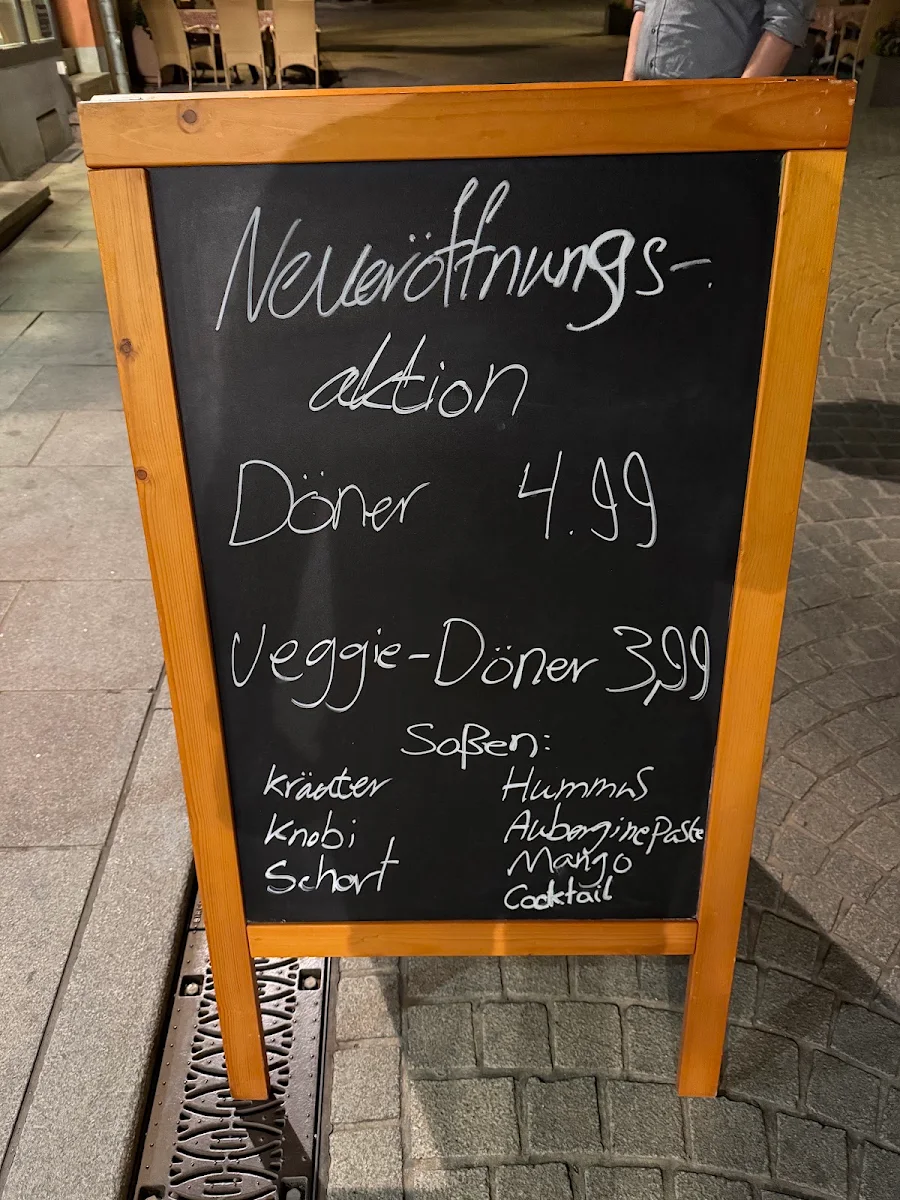 Neueröffnungs-
aktion
Döner 4.99
Veggie-Döner 3,99
Soßen:
Kräuter Hummus
Knobi AuberginePaste
Scharf Mango
Cocktail